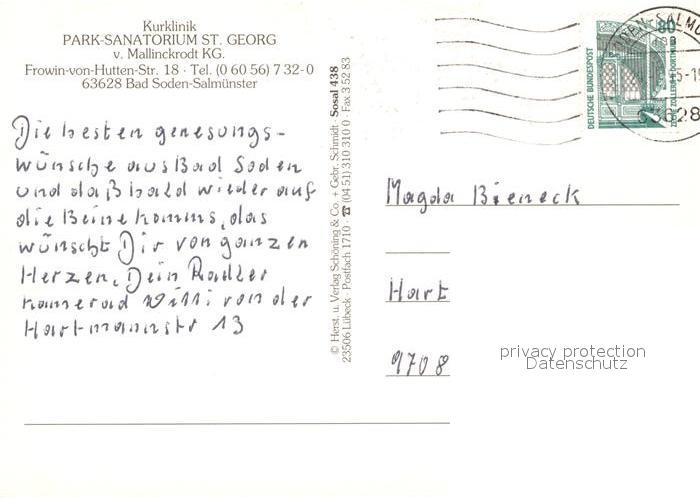 Kurklinik
PARK-SANATORIUM ST. GEORG
v. Mallinckrodt KG.
Frowin-von-Hutten-Str. 18 · Tel. (0 60 56) 7 32-0
63628 Bad Soden-Salmünster
Die besten genesungs-
wünsche aus Bad Soden
und daß bald wieder auf
die Beine komms, das
wünscht Dir von ganzen
Herzen, Dein Radler
kamerad Willi von der
Hartmannstr 13
© Herst. u. Verlag Schöning & Co. + Gebr. Schmidt · Sosal 438
23506 Lübeck · Postfach 1710 · ☎ (04 51) 310 310 0 · Fax 3 52 83
80
DEUTSCHE BUNDESPOST
63628
Magda Bieneck
Hart
9708
privacy protection
Datenschutz